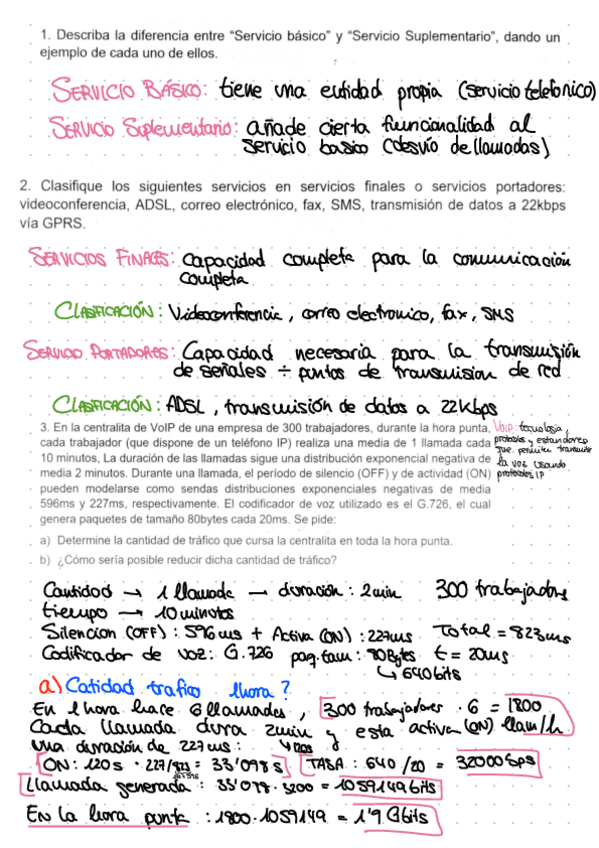 1. Describa la diferencia entre “Servicio básico” y “Servicio Suplementario”, dando un
ejemplo de cada uno de ellos.
SERVICIO BÁSICO: tiene una entidad propia (servicio telefonico)
SERVICIO Suplementario: añade cierta funcionalidad al
servicio basico (desvío de llamadas)
2. Clasifique los siguientes servicios en servicios finales o servicios portadores:
videoconferencia, ADSL, correo electrónico, fax, SMS, transmisión de datos a 22kbps
vía GPRS.
SERVICIOS FINALES: Capacidad completa para la comunicación
completa
CLASIFICACIÓN: Videoconferencia, correo electronico, fax, SMS
SERVICIO PORTADORES: Capacidad necesaria para la transmisión
de señales ÷ puntos de transmision de red
CLASIFICACIÓN: ADSL, transmisión de datos a 22Kbps
3. En la centralita de VoIP de una empresa de 300 trabajadores, durante la hora punta,
cada trabajador (que dispone de un teléfono IP) realiza una media de 1 llamada cada
10 minutos, La duración de las llamadas sigue una distribución exponencial negativa de
media 2 minutos. Durante una llamada, el período de silencio (OFF) y de actividad (ON)
pueden modelarse como sendas distribuciones exponenciales negativas de media
596ms y 227ms, respectivamente. El codificador de voz utilizado es el G.726, el cual
genera paquetes de tamaño 80bytes cada 20ms. Se pide:
VoIP: tecnologia,
protocolos y estandares
que permiten transmitir
la voz usando
protocolos IP
a) Determine la cantidad de tráfico que cursa la centralita en toda la hora punta.
b) ¿Cómo sería posible reducir dicha cantidad de tráfico?
Cantidad → 1 llamada → duración: 2min 300 trabajadores
tiempo → 10 minutos
Silencion (OFF): 596 ms + Activa (ON): 227ms Total = 823ms
Codificador de voz: G.726 paq.tam: 80Bytes t = 20ms
↳ 640bits
a) Catidad trafico 1hora?
En 1 hora hace 6 llamadas, 300 trabajadores · 6 = 1800
Cada llamada dura 2min y esta activa (ON) llam/h
una duración de 227 ms:
ON: 120s · 227/823 = 33'098 s TASA: 640/20 = 32000bps
Llamada generada: 33'098 · 3200 = 1059149 bits
En la hora punta: 1800 · 1059149 = 1'9 Gbits